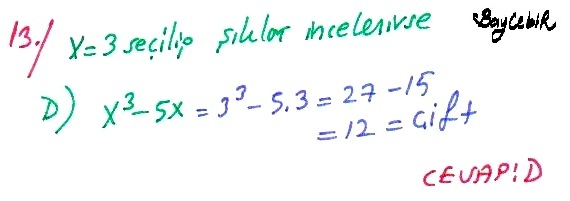 13./ X=3 seçilip şıklar incelenirse BayCebiR
D) X³-5X = 3³-5.3 = 27-15
= 12 = Çift
CEVAP: D